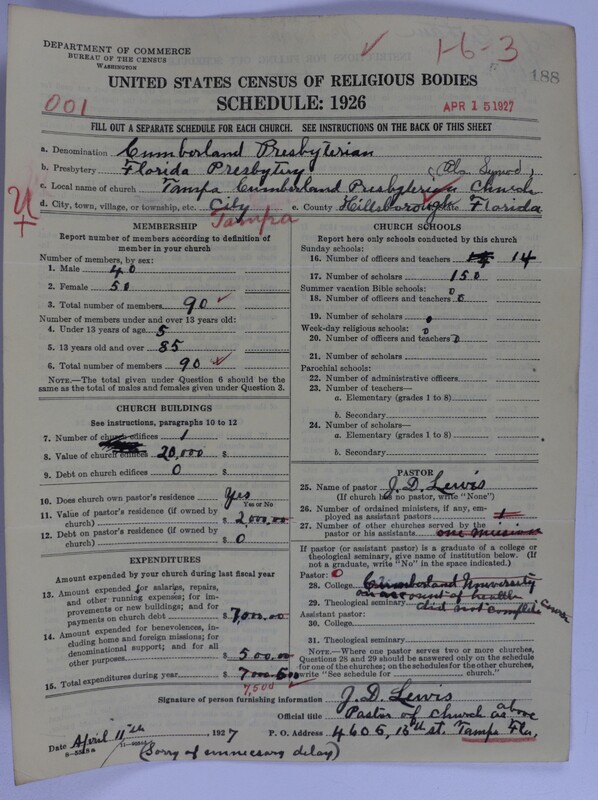 DEPARTMENT OF COMMERCE
BUREAU OF THE CENSUS
WASHINGTON
1-6-3
188
UNITED STATES CENSUS OF RELIGIOUS BODIES
SCHEDULE: 1926
001
APR 15 1927
FILL OUT A SEPARATE SCHEDULE FOR EACH CHURCH. SEE INSTRUCTIONS ON THE BACK OF THIS SHEET
a. Denomination Cumberland Presbyterian
b. Presbytery Florida Presbytery (Ala Synod)
c. Local name of church Tampa Cumberland Presbyterian Church
d. City, town, village, or township, etc. City Tampa e. County Hillsborough Florida
U
MEMBERSHIP
Report number of members according to definition of
member in your church
Number of members, by sex:
1. Male 40
2. Female 50
3. Total number of members 90
Number of members under and over 13 years old:
4. Under 13 years of age 5
5. 13 years old and over 85
6. Total number of members 90
NOTE.—The total given under Question 6 should be the
same as the total of males and females given under Question 3.
CHURCH BUILDINGS
See instructions, paragraphs 10 to 12
7. Number of church edifices 1
8. Value of church edifices 20,000 $
9. Debt on church edifices 0 $
10. Does church own pastor's residence Yes
Yes or No
11. Value of pastor's residence (if owned by
church) $ 2,000.00
12. Debt on pastor's residence (if owned by
church) $ 0
EXPENDITURES
Amount expended by your church during last fiscal year
13. Amount expended for salaries, repairs,
and other running expenses; for im-
provements or new buildings; and for
payments on church debt $ 7,000.00
14. Amount expended for benevolences, in-
cluding home and foreign missions; for
denominational support; and for all
other purposes $ 500.00
15. Total expenditures during year $
7,500
CHURCH SCHOOLS
Report here only schools conducted by this church
Sunday schools:
16. Number of officers and teachers 14
17. Number of scholars 150
Summer vacation Bible schools: 0
18. Number of officers and teachers 0
19. Number of scholars 0
Week-day religious schools: 0
20. Number of officers and teachers 0
21. Number of scholars
Parochial schools:
22. Number of administrative officers
23. Number of teachers—
a. Elementary (grades 1 to 8)
b. Secondary
24. Number of scholars—
a. Elementary (grades 1 to 8)
b. Secondary
PASTOR
25. Name of pastor J. D. Lewis
(If church has no pastor, write "None")
26. Number of ordained ministers, if any, em-
ployed as assistant pastors
27. Number of other churches served by the
pastor or his assistants one mission
If pastor (or assistant pastor) is a graduate of a college or
theological seminary, give name of institution below. (If
not a graduate, write "No" in the space indicated.)
Pastor: 0
28. College Cumberland University
on account of health
29. Theological seminary did not complete Course
Assistant pastor:
30. College
31. Theological seminary
NOTE.—Where one pastor serves two or more churches,
Questions 28 and 29 should be answered only on the schedule
for one of the churches; on the schedules for the other churches,
write "See schedule for church."
Signature of person furnishing information J. D. Lewis
Official title Pastor of Church as above
Date April 11th 1927 P. O. Address 4606, 15th st. Tampa Fla.
(Sorry of unnecesary delay)